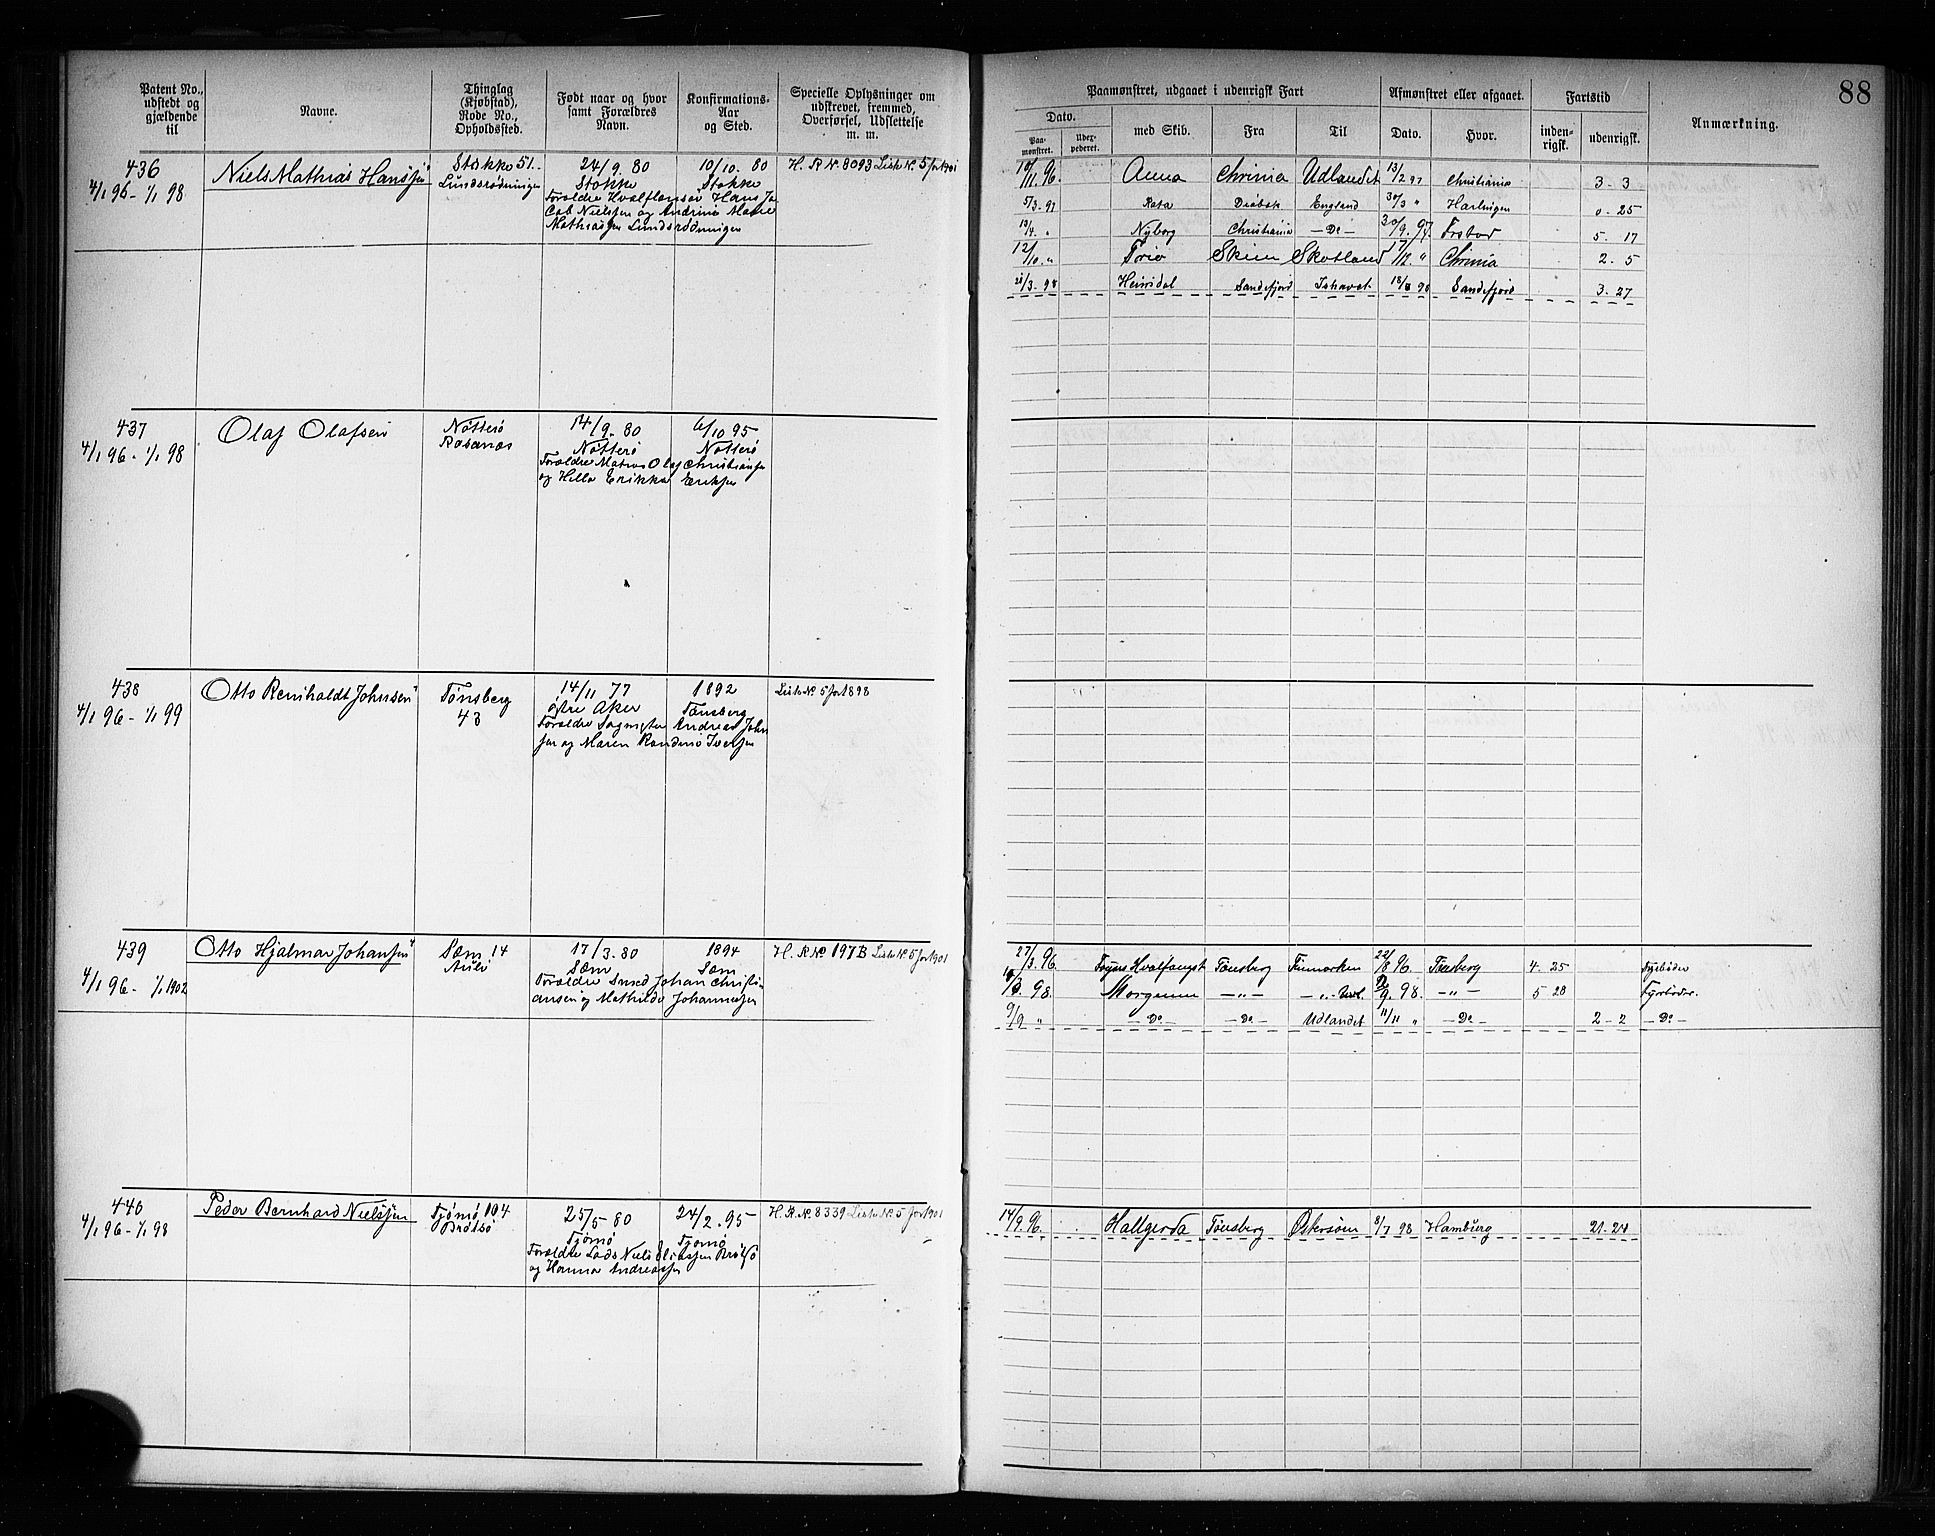 88
Patent No., udstedt og gjældende til
Navne.
Thinglag (Kjøbstad), Rode No., Opholdssted.
Født naar og hvor samt Forældres Navn.
Konfirmations-Aar og Sted.
Specielle Oplysninger om udskrevet, fremmed, Overførsel, Udslettelse m. m.
Paamønstret, udgaaet i udenrigsk Fart
Afmønstret eller afgaaet.
Fartstid
Anmærkning.
Dato.
Paa-mønstret.
Uder-pederet.
med Skib.
Fra
Til
Dato.
Hvor.
inden-rigsk.
udenrigsk.
436
4/1 96 - 1/1 98
Niels Mathias Hansen
Stokke 51.
Lundsrødningen
24/9. 80
Stokke
10/10. 80
Stokke
Forældre Hvalflenser Hans Ja
Cob Nielssen og Andrine Marie
Mathiassen Lundsrødningen
H. R N. 8093 Liste N. 5 for 1901
10/11. 96. Anna Chrinia Udlandet 13/2 97 Christiania 3 - 3
5/3. 97 Rota Drøbak England 30/3 " Harlingen 0 - 25
13/4. " Nyborg Christiania - Do - 30/9. 97. 5 - 17
12/10. " Skien Skotland 17/12. " Chrinia 2 - 5
21/3. 98 Heimdal Sandefjord Ishavet 18/8 98 Sandefjord 3 - 27
437
4/1 96 - 1/1 98
Olaf Olafsen
Nøtterø
Rosanæs
14/9. 80
Nøtterø
6/10 95
Nøtterø
Forældre Matros Olaf Christiansen
og Hella Erikka Eriksen
438
4/1 96 - 1/1 99
Otto Reniholdt Johnsen
Tønsberg
43
14/11 77
østre Aker
1892
Tønsberg
Forældre Sagmester Andreas John
sen og Maren Randine Iversen
Liste N. 5 for 1898
439
4/1 96 - 1/1 1902
Otto Hjalmar Johansen
Sæm 14
Auli
17/3. 80
Sæm
1894
Sæm
Forældre Smed Johan Christi
ansen og Mathilde Johannesen
H. R No 197 B Liste N. 5 for 1901
27/3 96. Foyns Hvalfangst Tønsberg Finmarken 22/8 96. Tønsberg 4 - 25 Fyrbøder
98. Morgenen - " - - " - 9. 98. - " - 5 28 Fyrbøder.
9/9 " - Do - - Do - Udlandet 11/11 " - Do - 2 - 2 - Do -
440
4/1 96 - 1/1 98
Peder Bernhard Nielssen
Tjømø 104
Brøtsø
25/5 - 80
Tjømø
24/2. 95
Tjømø
Forældre Lods Niels Brøtsø
og Hanna Andreassen
H. R. N. 8339 Liste N. 5 for 1901
14/9. 96. Hallgerda Tønsberg 8/7 98 Hamburg 21 - 24